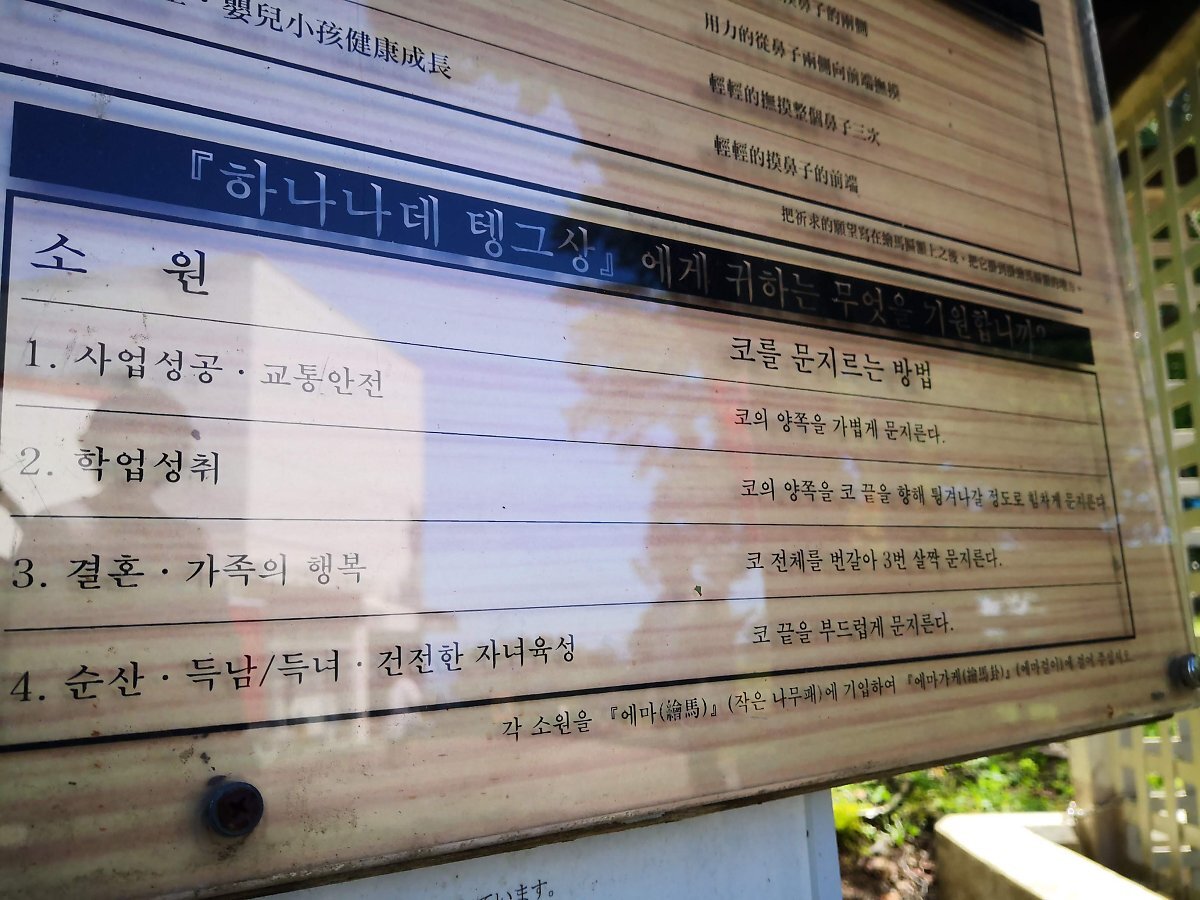 嬰兒小孩健康成長
鼻子的兩側
用力的從鼻子兩側向前端撫摸
輕輕的撫摸整個鼻子三次
輕輕的摸鼻子的前端
把祈求的願望寫在繪馬匾額上之後，把它掛到掛繪馬匾額的地方。
『하나나데 텡그상』에게 귀하는 무엇을 기원합니까?
소 원
코를 문지르는 방법
1. 사업성공 · 교통안전
코의 양쪽을 가볍게 문지른다.
2. 학업성취
코의 양쪽을 코 끝을 향해 튕겨나갈 정도로 힘차게 문지른다
3. 결혼 · 가족의 행복
코 전체를 번갈아 3번 살짝 문지른다.
4. 순산 · 득남/득녀 · 건전한 자녀육성
코 끝을 부드럽게 문지른다.
각 소원을 『에마(繪馬)』(작은 나무패)에 기입하여 『에마가케(繪馬掛)』(에마걸이)에 걸어 주십시오
います。